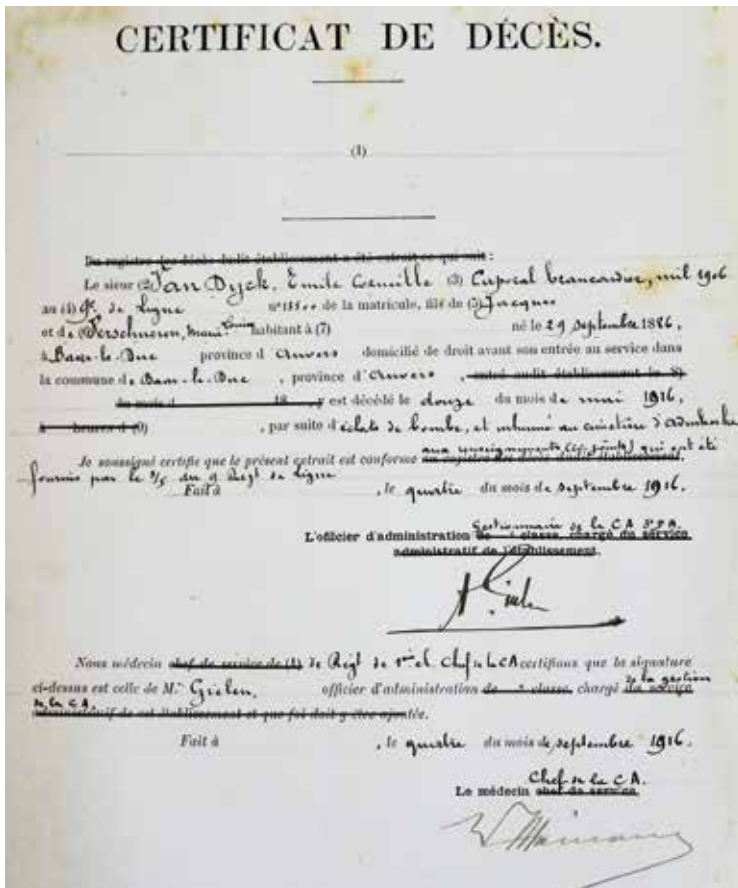 CERTIFICAT DE DÉCÈS.
(1)
Du registre des décès dudit établissement a été extrait ce qui suit :
Le sieur (2) Van Dyck, Emile Corneille (3) Caporal brancardier, mil 1906
au (4) 9e de Ligne n° de la matricule, fils de (5) Jacques
et de Verschueren, Marie habitant à (7) né le 29 septembre 1886,
à Baar-le-Duc province d'Anvers domicilié de droit avant son entrée au service dans
la commune de Baar-le-Duc, province d'Anvers, entré audit établissement le 8)
du mois d 18 , y est décédé le douze du mois de mai 1916,
à heures d (9) , par suite d'éclats de bombe, et inhumé au cimetière d'Adinkerke
aux renseignements qui ont été
Je soussigné certifie que le présent extrait est conforme au registre des décès dudit établissement.
fournis par le du 9 Regt de Ligne
Fait à , le quatre du mois de septembre 1916.
Gestionnaire de la CA
L'officier d'administration de classe chargé du service
administratif de l'établissement.
Nous médecin chef de service de (1) de Regt de Chef de la CA certifions que la signature
ci-dessus est celle de M. Gielen, officier d'administration de classe, chargé du service
de la gestion
de la CA.
administratif de cet établissement et que foi doit y être ajoutée.
Fait à , le quatre du mois de septembre 1916.
Chef de la CA.
Le médecin chef de service